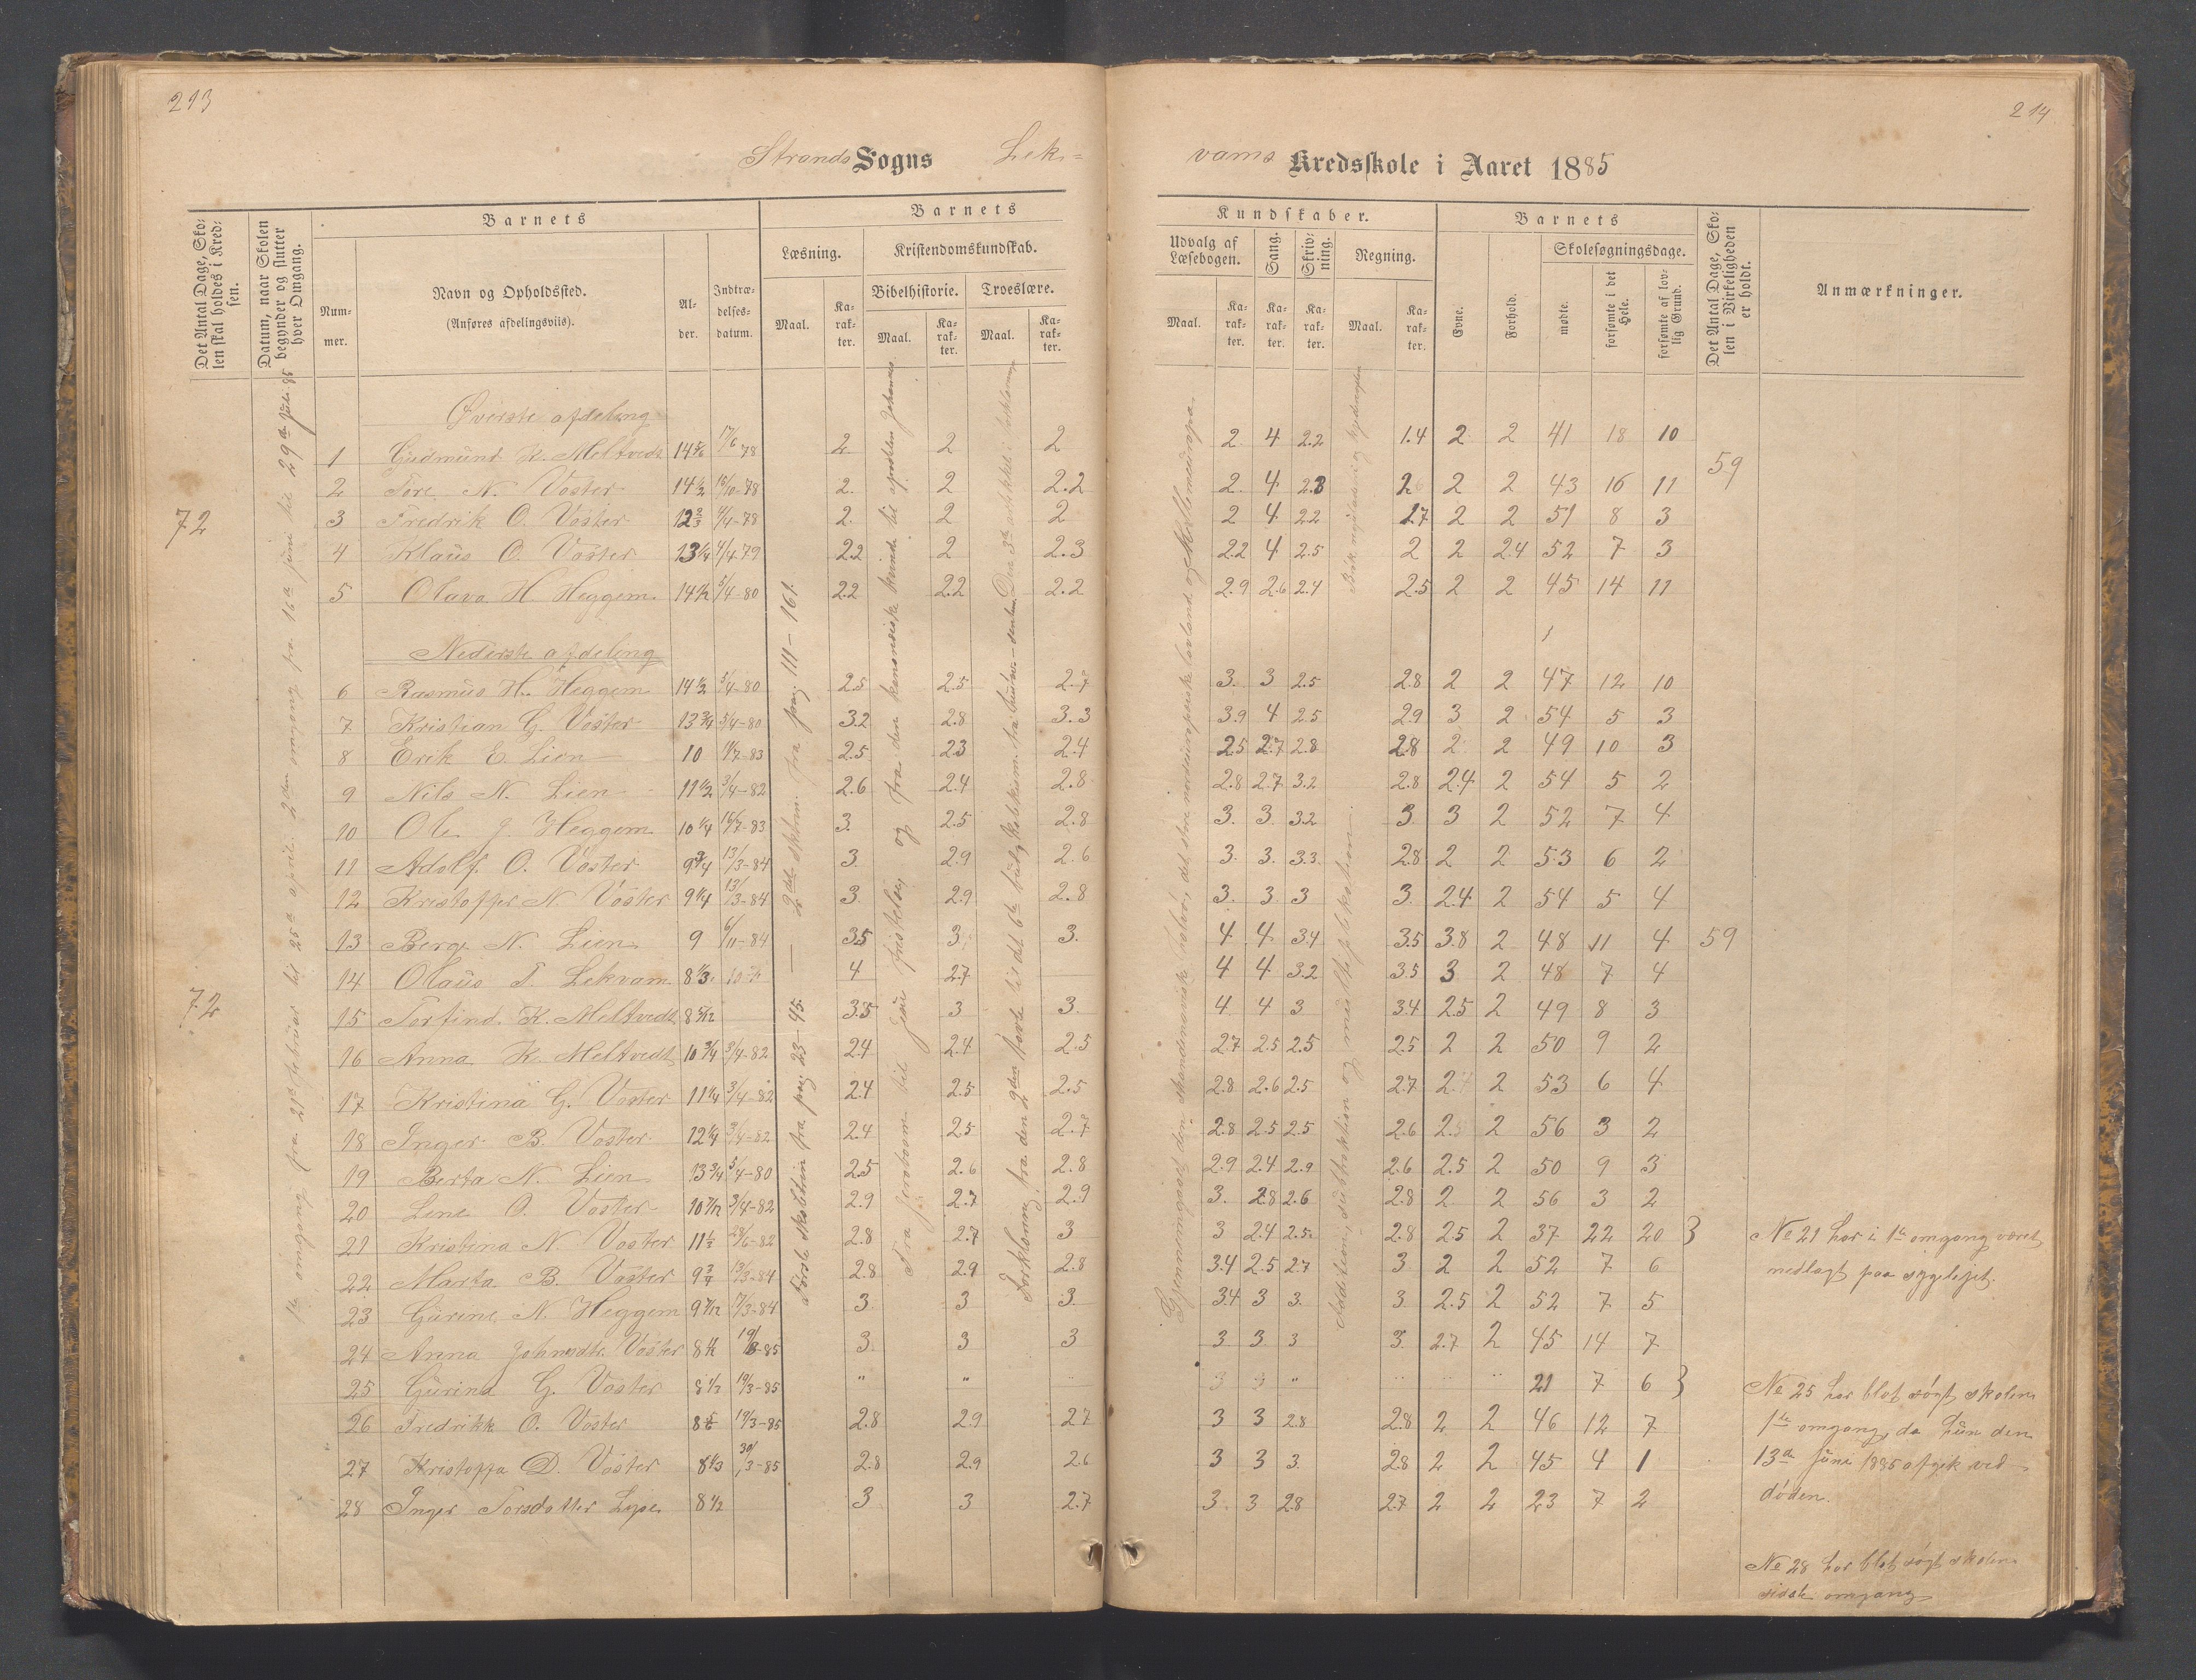 213
214
Strands Sogns Lek=
vams Kredsskole i Aaret 1885
Det Antal Dage, Sko-
len skal holdes i Kred-
sen.
Datum, naar Skolen
begynder og slutter
hver Omgang.
Barnets
Num-
mer.
Navn og Opholdssted.
(Anføres afdelingsviis).
Al-
der.
Indtræ-
delses-
datum.
Barnets
Læsning.
Kristendomskundskab.
Bibelhistorie. Troeslære.
Maal. Ka-
rak-
ter.
Maal. Ka-
rak-
ter.
Maal. Ka-
rak-
ter.
Kundskaber.
Udvalg af
Læsebogen.
Sang.
Skriv-
ning.
Regning.
Maal. Ka-
rak-
ter.
Ka-
rak-
ter.
Ka-
rak-
ter.
Maal. Ka-
rak-
ter.
Barnets
Evne.
Forhold.
Skolesøgningsdage.
mødte.
forsømte i det
Hele.
forsømte af lov-
lig Grund.
Det Antal Dage, Sko-
len i Virkeligheden
er holdt.
Anmærkninger.
1ste omgang fra 21de februar til 25de april: 2den omgang fra 16de juni til 29de juli 85
Første skoletrin fra pag. 23-45. — 2det sktrin. fra pag. 111-161.
Øverste afdeling
1 Gudmund K. Meltvedt 14 5/6 17/6 78 2. 2 2 2 4 2.2 1.4 2 2 41 18 10
59
2 Tore N. Voster 14 1/2 15/10-78 2. 2 2.2 2. 4 2.3 2 2 2 43 16 11
72
3 Fredrik O. Voster 12 2/3 4/4-78 2. 2 2 2 4 2.2 2.7 2 2 51 8 3
4 Klaus O. Voster 13 1/4 4/4-79 2.2 2 2.3 2.2 4 2.5 2 2 2.4 52 7 3
5 Olava H. Heggem 14 1/2 5/4-80 2.2 2.2 2.2 2.9 2.6 2.4 2.5 2 2 45 14 11
Nederste afdeling
6 Rasmus H. Heggem 14 1/2 5/4-80 2.5 2.5 2.7 3. 3 2.5 2.8 2 2 47 12 10
7 Kristian G. Voster 13 3/4 5/4-80 3.2 2.8 3.3 3.9 4 2.5 2.9 3 2 54 5 3
8 Erik E. Lien 10 11/7-83 2.5 2.3 2.4 2.5 2.7 2.8 2.8 2 2 49 10 3
9 Nils N. Lien 11 1/2 3/4-82 2.6 2.4 2.8 2.8 2.7 3.2 2.8 2.4 2 54 5 2
10 Ole J. Heggem 10 1/4 16/7-83 3. 2.5 2.8 3. 3. 3.2 3 3 2 52 7 4
11 Adolf. O. Voster 9 3/4 13/3-84 3. 2.9 2.6 3. 3. 3.3 2.8 2 2 53 6 2
12 Kristoffer N. Voster 9 1/4 13/3-84 3. 2.9 2.8 3. 3 3 3. 2.4 2 54 5 4
13 Berge N. Lien 9 6/11-84 3.5 3. 3. 4 4. 3.4 3.5 3.8 2 48 11 4 59
14 Olaus T. Lekvam 8 1/3 4 2.7 4 4. 3.2 3.5 3 2 48 7 4
72
15 Torfind K. Meltvedt 8 5/12 3.5 3 3. 4 4 3 3.4 2.5 2 49 8 3
16 Anna K. Meltvedt 10 3/4 3/4-82 2.4 2.4 2.5 2.7 2.5 2.5 2.5 2 2 50 9 2
17 Kristina G. Voster 11 1/4 3/4-82 2.4 2.5 2.5 2.8 2.6 2.5 2.7 2.4 2 53 6 4
18 Inger B. Voster 12 1/4 3/4-82 2.4 2.5 2.7 2.8 2.5 2.5 2.6 2.5 2 56 3 2
19 Berta N. Lien 13 3/4 5/4-80 2.5 2.6 2.8 2.9 2.4 2.9 2.6 2.5 2 50 9 3
20 Lene O. Voster 10 7/12 3/4-82 2.9 2.7 2.9 3. 2.8 2.6 2.8 2 2 56 3 2
21 Kristina N. Voster 11 1/2 28/6-82 2.8 2.7 3 3 2.4 2.5 2.8 2.5 2 37 22 20 }
22 Marta B. Voster 9 3/4 13/3-84 2.8 2.9 2.8 3.4 2.5 2.7 3. 2 2 52 7 6
23 Gurine N. Heggem 9 7/12 7/3-84 3. 3 3. 3.4 3 3. 3. 2.5 2 52 7 5
24 Anna Johnsdtr. Voster 8 1/2 19/3-85 3. 3 3 3 3 3 3. 2.7 2 45 14 7
25 Gurina G. Voster 8 1/3 19/3-85 " " " 3 3 " " " " 21 7 6 }
26 Fredrikk O. Voster 8 5/6 19/3-85 2.8 2.9 2.7 3 3 2.8 2.8 2 2 46 12 7
27 Kristoffa D. Voster 8 1/3 30/3-85 2.8 2.9 2.6 3 3 3. 2.8 2 2 45 4 1
28 Inger Torsdatter Lype 8 1/2 3 3 2.7 3. 3 2.8 2.7 2 2 23 7 2
Addition, subtraktion og multiplikation.
No 21 har i 1ste omgang været
nedlagt paa sygelejet.
No 25 har blot søgt skolen
1ste omgang, da hun den
13de juni 1885 afgik ved
døden.
No 28 har blot søgt skolen
sidste omgang